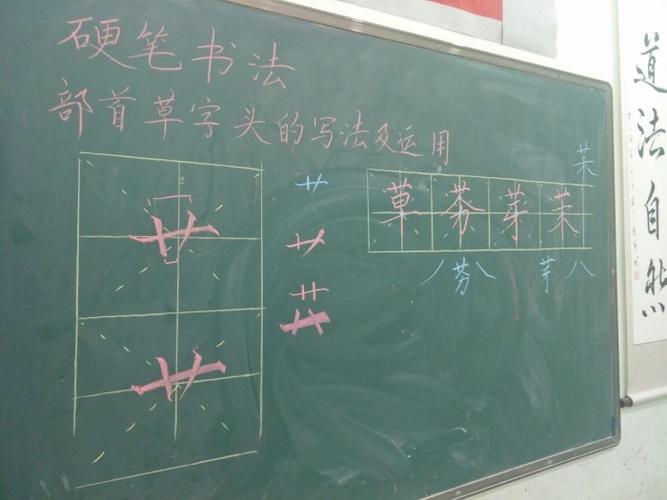 硬笔书法
部首草字头的写法及运用
艹
艹
艹
艹
艹
艹
茉
草芬芽茉
芬
道法自然